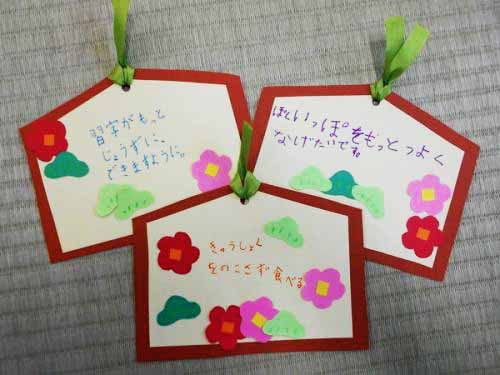 習字がもっと
じょうずに、
できますように。
ぼくいっぽをもっとつよく
なげたいです
きゅうしょく
をのこさず食べる